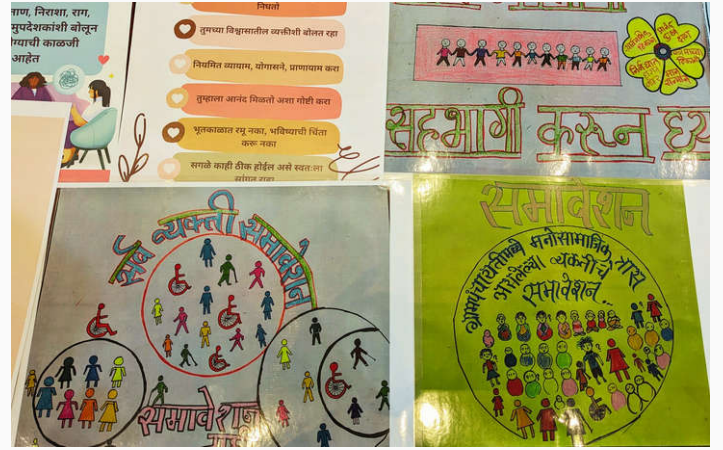 ाण, निराशा, राग,
मुपदेशकांशी बोलून
ग्याची काळजी
आहेत
निघतो
तुमच्या विश्वासातील व्यक्तीशी बोलत रहा
नियमित व्यायाम, योगासने, प्राणायाम करा
तुम्हाला आनंद मिळतो अशा गोष्टी करा
भूतकाळात रमू नका, भविष्याची चिंता
करू नका
सगळे काही ठीक होईल असे स्वतःला
सांगत रहा
सहभागी करून घ्य
सर्व व्यक्ती समावेशन
समावेशन
समावेशन
ग्रामपंचायतीमध्ये मनोसामाजिक त्रास
असलेल्या व्यक्तींचे
समावेशन..